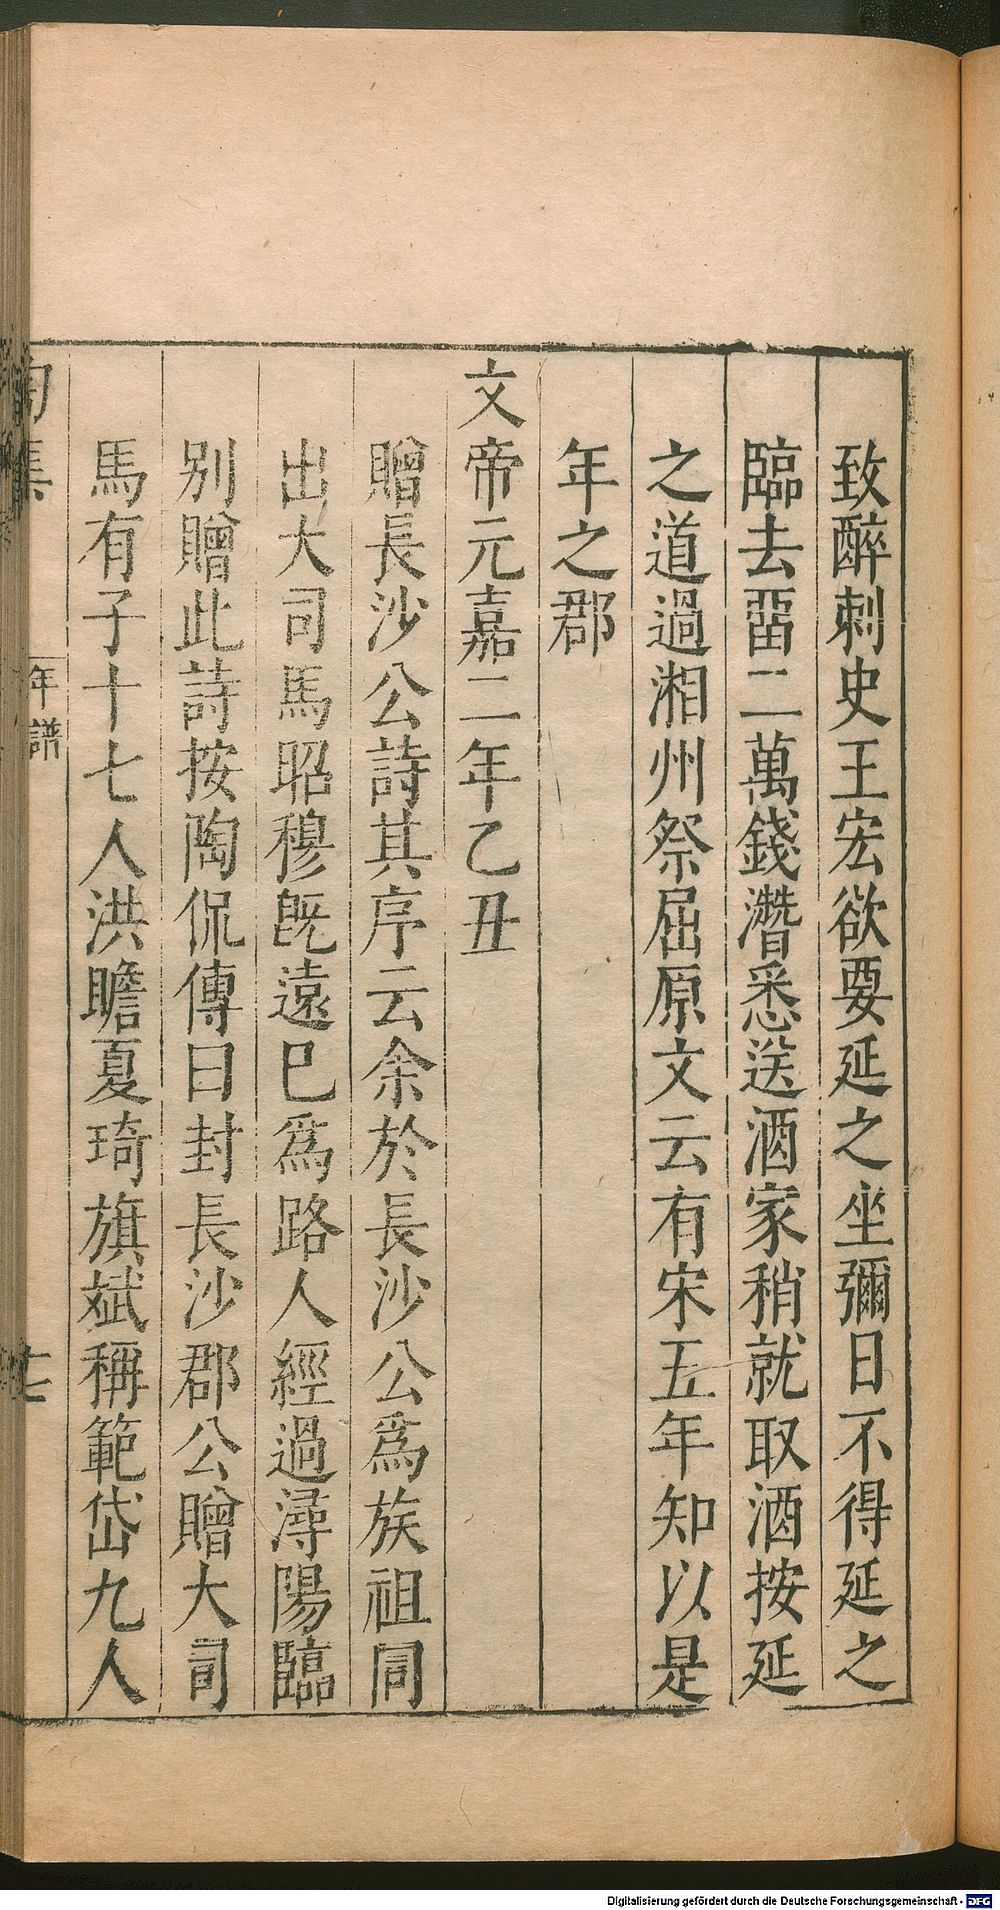 致醉刺史王宏欲要延之坐彌日不得延之
臨去畱二萬錢濳悉送酒家稍就取酒按延
之道過湘州祭屈原文云有宋五年知以是
年之郡
文帝元嘉二年乙丑
贈長沙公詩其序云余於長沙公爲族祖同
出大司馬昭穆旣遠已爲路人經過潯陽臨
别贈此詩按陶侃傳曰封長沙郡公贈大司
馬有子十七人洪瞻夏琦旗斌稱範岱九人
陶集
年譜
七
Digitalisierung gefördert durch die Deutsche Forschungsgemeinschaft - DFG